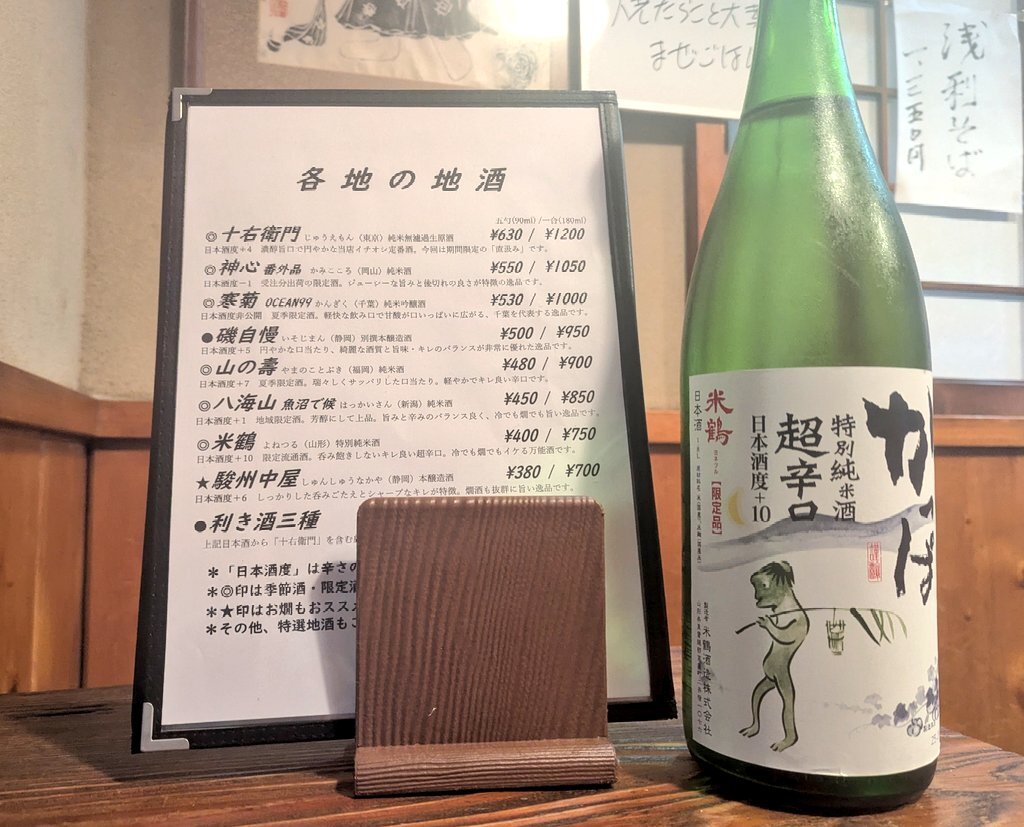 各地の地酒
五勺(90ml)/一合(180ml)
◎十右衛門 じゅうえもん（東京）純米無濾過生原酒 ¥630 / ¥1200
日本酒度+4 濃醇旨口で円やかな当店イチオシ定番酒。今回は期間限定の「直汲み」です。
◎神心 番外品 かみこころ（岡山）純米酒 ¥550 / ¥1050
日本酒度-1 受注分出荷の限定酒。ジューシーな旨みと後切れの良さが特徴の逸品です。
◎寒菊 OCEAN99 かんぎく（千葉）純米吟醸酒 ¥530 / ¥1000
日本酒度非公開 夏季限定酒。軽快な飲み口で甘酸が口いっぱいに広がる、千葉を代表する逸品です。
●磯自慢 いそじまん（静岡）別撰本醸造酒 ¥500 / ¥950
日本酒度+5 円やかな口当たり、綺麗な酒質と旨味・キレのバランスが非常に優れた逸品です。
◎山の壽 やまのことぶき（福岡）純米酒 ¥480 / ¥900
日本酒度+7 夏季限定酒。瑞々しくサッパリした口当たり。軽やかでキレ良い辛口です。
◎八海山 魚沼で候 はっかいさん（新潟）純米酒 ¥450 / ¥850
日本酒度+1 地域限定酒。芳醇にして上品。旨みと辛みのバランス良く、冷でも燗でも旨い逸品です。
◎米鶴 よねつる（山形）特別純米酒 ¥400 / ¥750
日本酒度+10 限定流通酒。呑み飽きしないキレ良い超辛口。冷でも燗でもイケる万能酒です。
★駿州中屋 しゅんしゅうなかや（静岡）本醸造酒 ¥380 / ¥700
日本酒度+6 しっかりした呑みごたえとシャープなキレが特徴。燗酒も抜群に旨い逸品です。
●利き酒三種
上記日本酒から『十右衛門』を含む
＊「日本酒度」は辛さの
＊◎印は季節酒・限定酒
＊★印はお燗もおススメ
＊その他、特選地酒もご
まぜごはん
浅利そば
一、三五〇円
かっぱ
特別純米酒
超辛口
日本酒度+10
米鶴
ヨネツル
【限定品】
日本酒
製造者 米鶴酒造株式会社